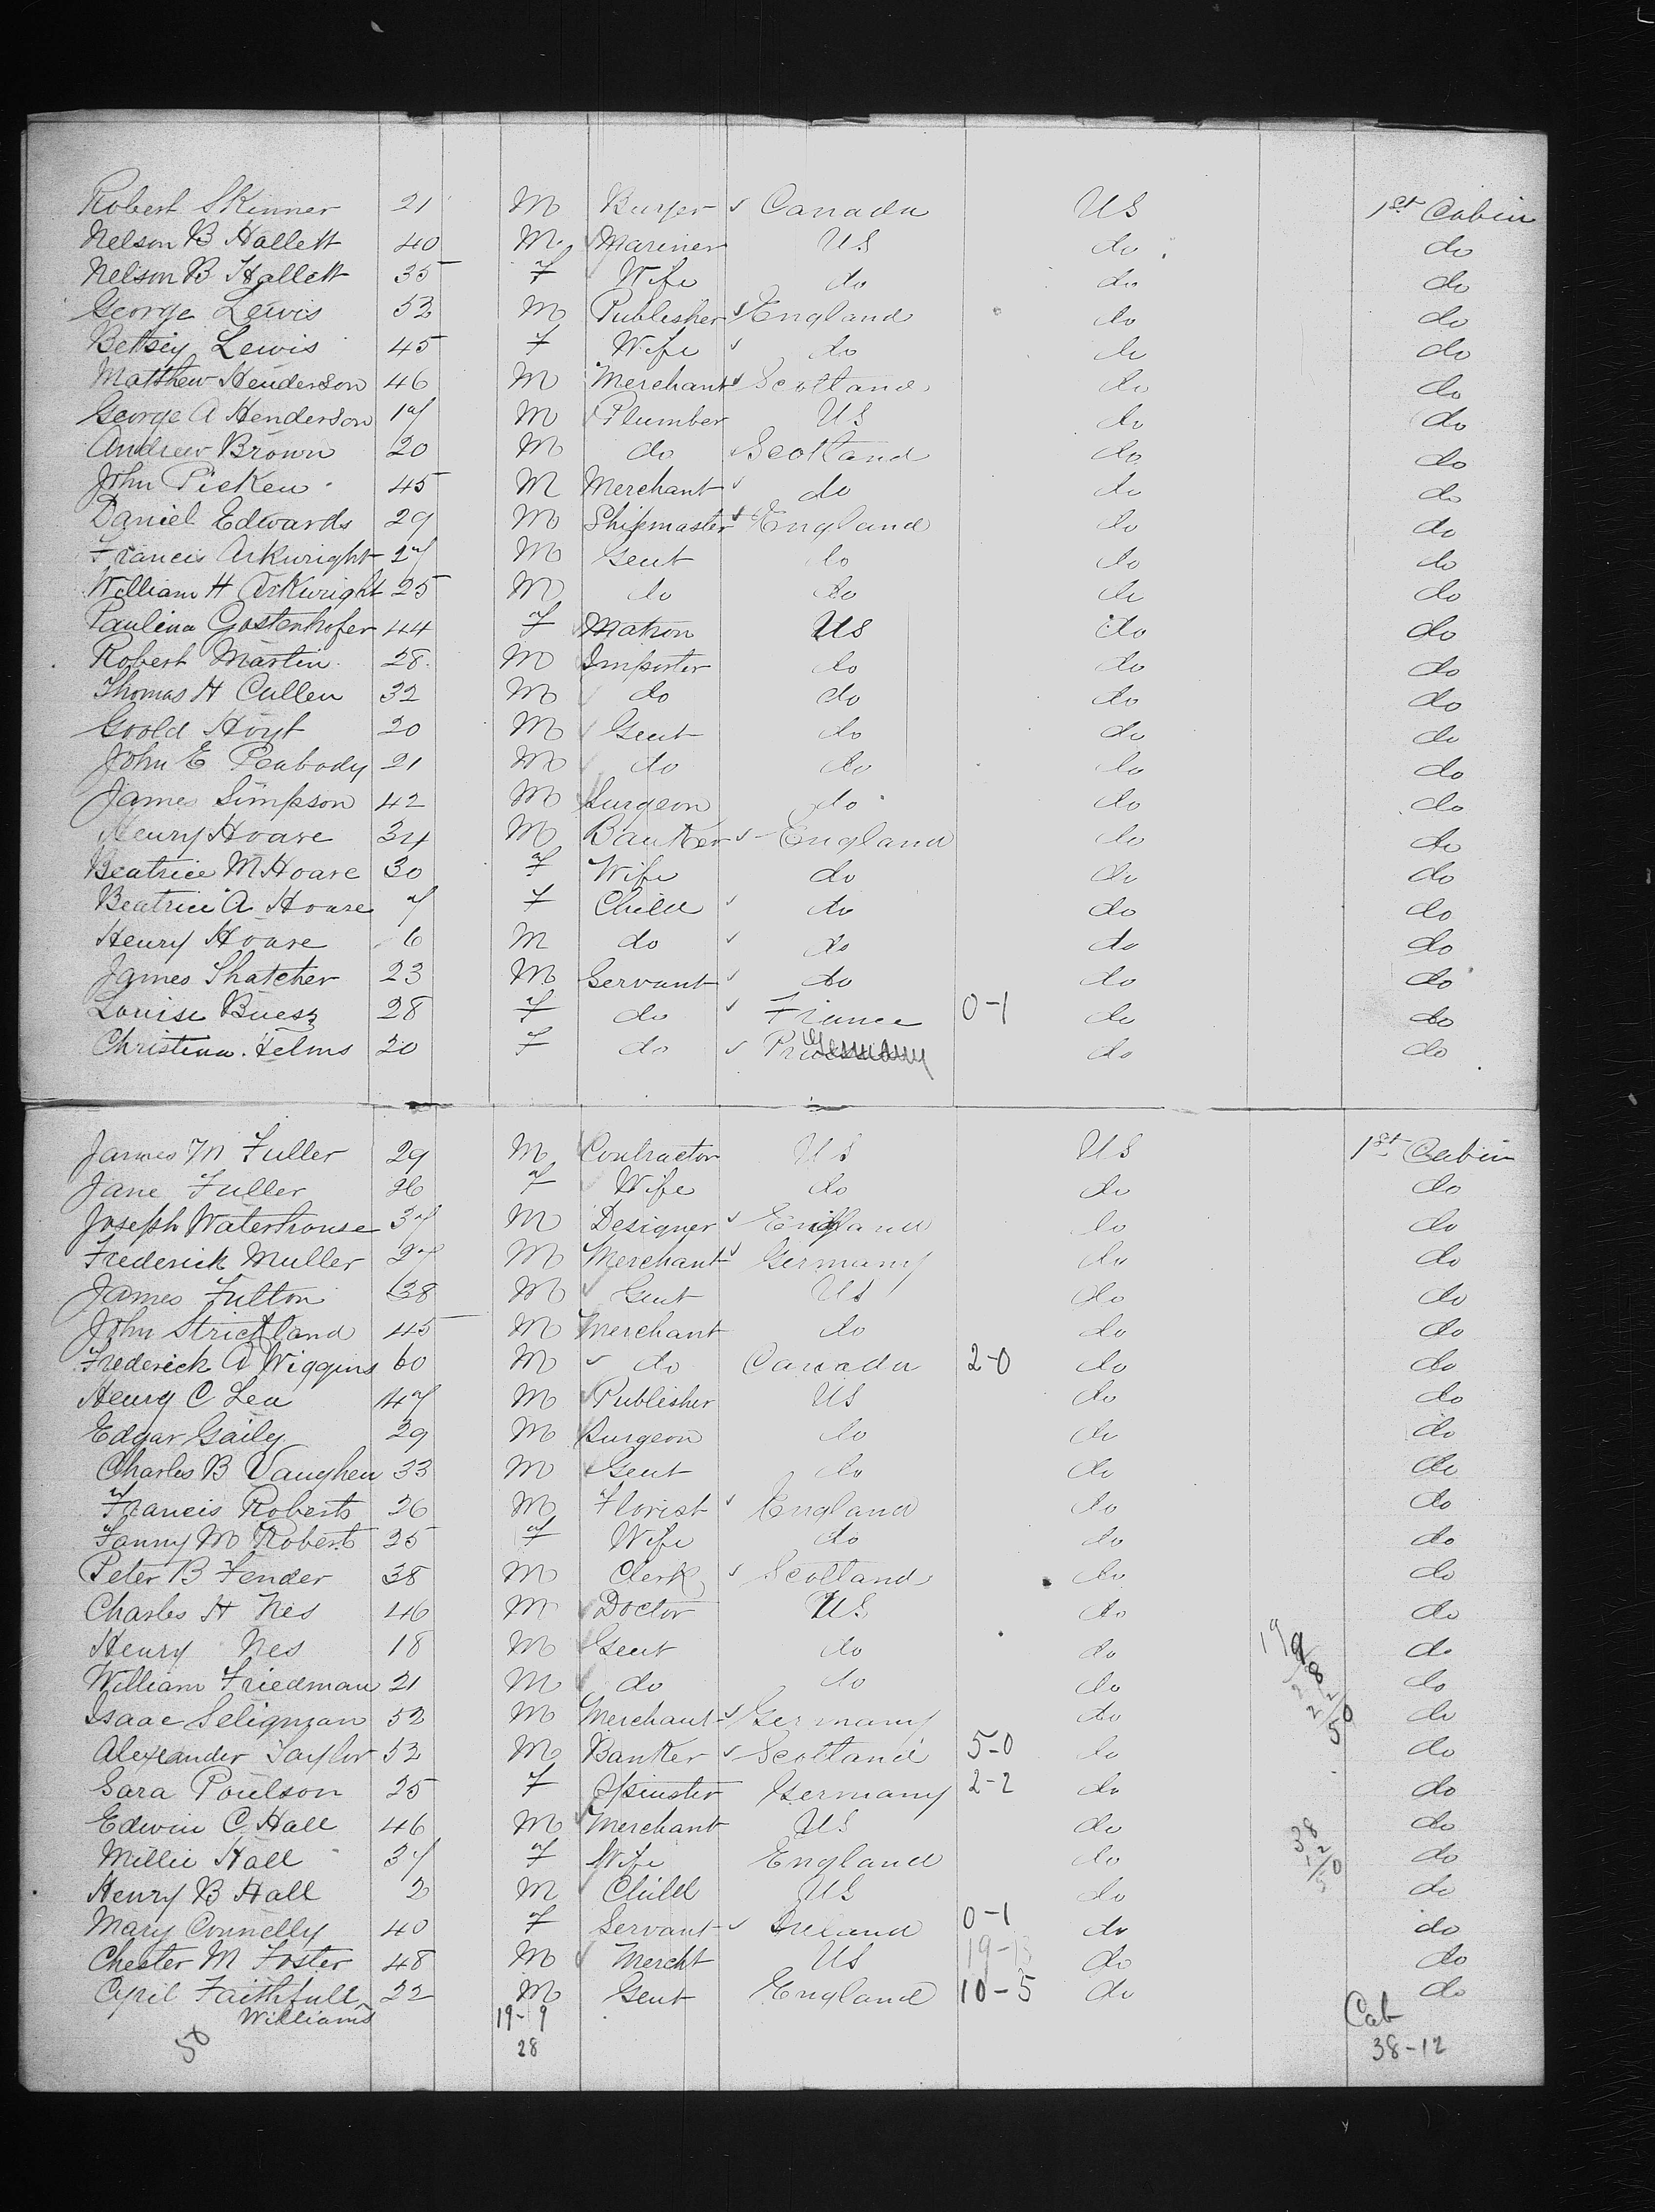 Robert Skinner 21 M Buyer Canada US 1st Cabin
Nelson B Hallett 40 M Mariner US do do
Nelson B Hallett 35 F Wife do do do
George Lewis 53 M Publisher England do do
Betsey Lewis 45 F Wife do do do
Matthew Henderson 46 M Merchant Scotland do do
George A Henderson 17 M Plumber US do do
Andrew Brown 20 M do Scotland do do
John Picken 45 M Merchant do do do
Daniel Edwards 29 M Shipmaster England do do
Francis Arkwright 27 M Gent do do do
William H Arkwright 25 M do do do do
Paulina Gostenhofer 44 F Matron US do do
Robert Martin 28 M Importer do do do
Thomas H Cullen 32 M do do do do
Goold Hoyt 20 M Gent do do do
John E Peabody 21 M do do do do
James Simpson 42 M Surgeon do do do
Henry Hoare 34 M Banker England do do
Beatrice M Hoare 30 F Wife do do do
Beatrice A Hoare 7 F Child do do do
Henry Hoare 6 M do do do do
James Thatcher 23 M Servant do do do
Louise Buesz 28 F do France 0-1 do do
Christina Helms 20 F do Germany do do
James M Fuller 29 M Contractor US US 1st Cabin
Jane Fuller 26 F Wife do do do
Joseph Waterhouse 37 M Designer England do do
Frederick Muller 27 M Merchant Germany do do
James Fulton 38 M Gent US do do
John Strickland 45 M Merchant do do do
Frederick A Wiggins 60 M do Canada 2-0 do do
Henry C Lea 47 M Publisher US do do
Edgar Gaily 29 M Surgeon do do do
Charles B Vaughen 33 M Gent do do do
Francis Roberts 26 M Florist England do do
Fanny M Roberts 25 F Wife do do do
Peter B Fender 38 M Clerk Scotland do do
Charles H Nes 46 M Doctor US do do
Henry Nes 18 M Gent do do do
William Friedman 21 M do do do do
Isaac Seligman 52 M Merchant Germany do do
Alexander Taylor 52 M Banker Scotland 5-0 do do
Sara Poulson 25 F Spinster Germany 2-2 do do
Edwin C Hall 46 M Merchant US do do
Millie Hall 37 F Wife England do do
Henry B Hall 2 M Child US do do
Mary Connelly 40 F Servant Ireland 0-1 do do
Chester M Foster 48 M Mercht US do do
Cyril Faithfull 22 M Gent England 10-5 do do
Williams 19-9 Cab
50 28 38-12